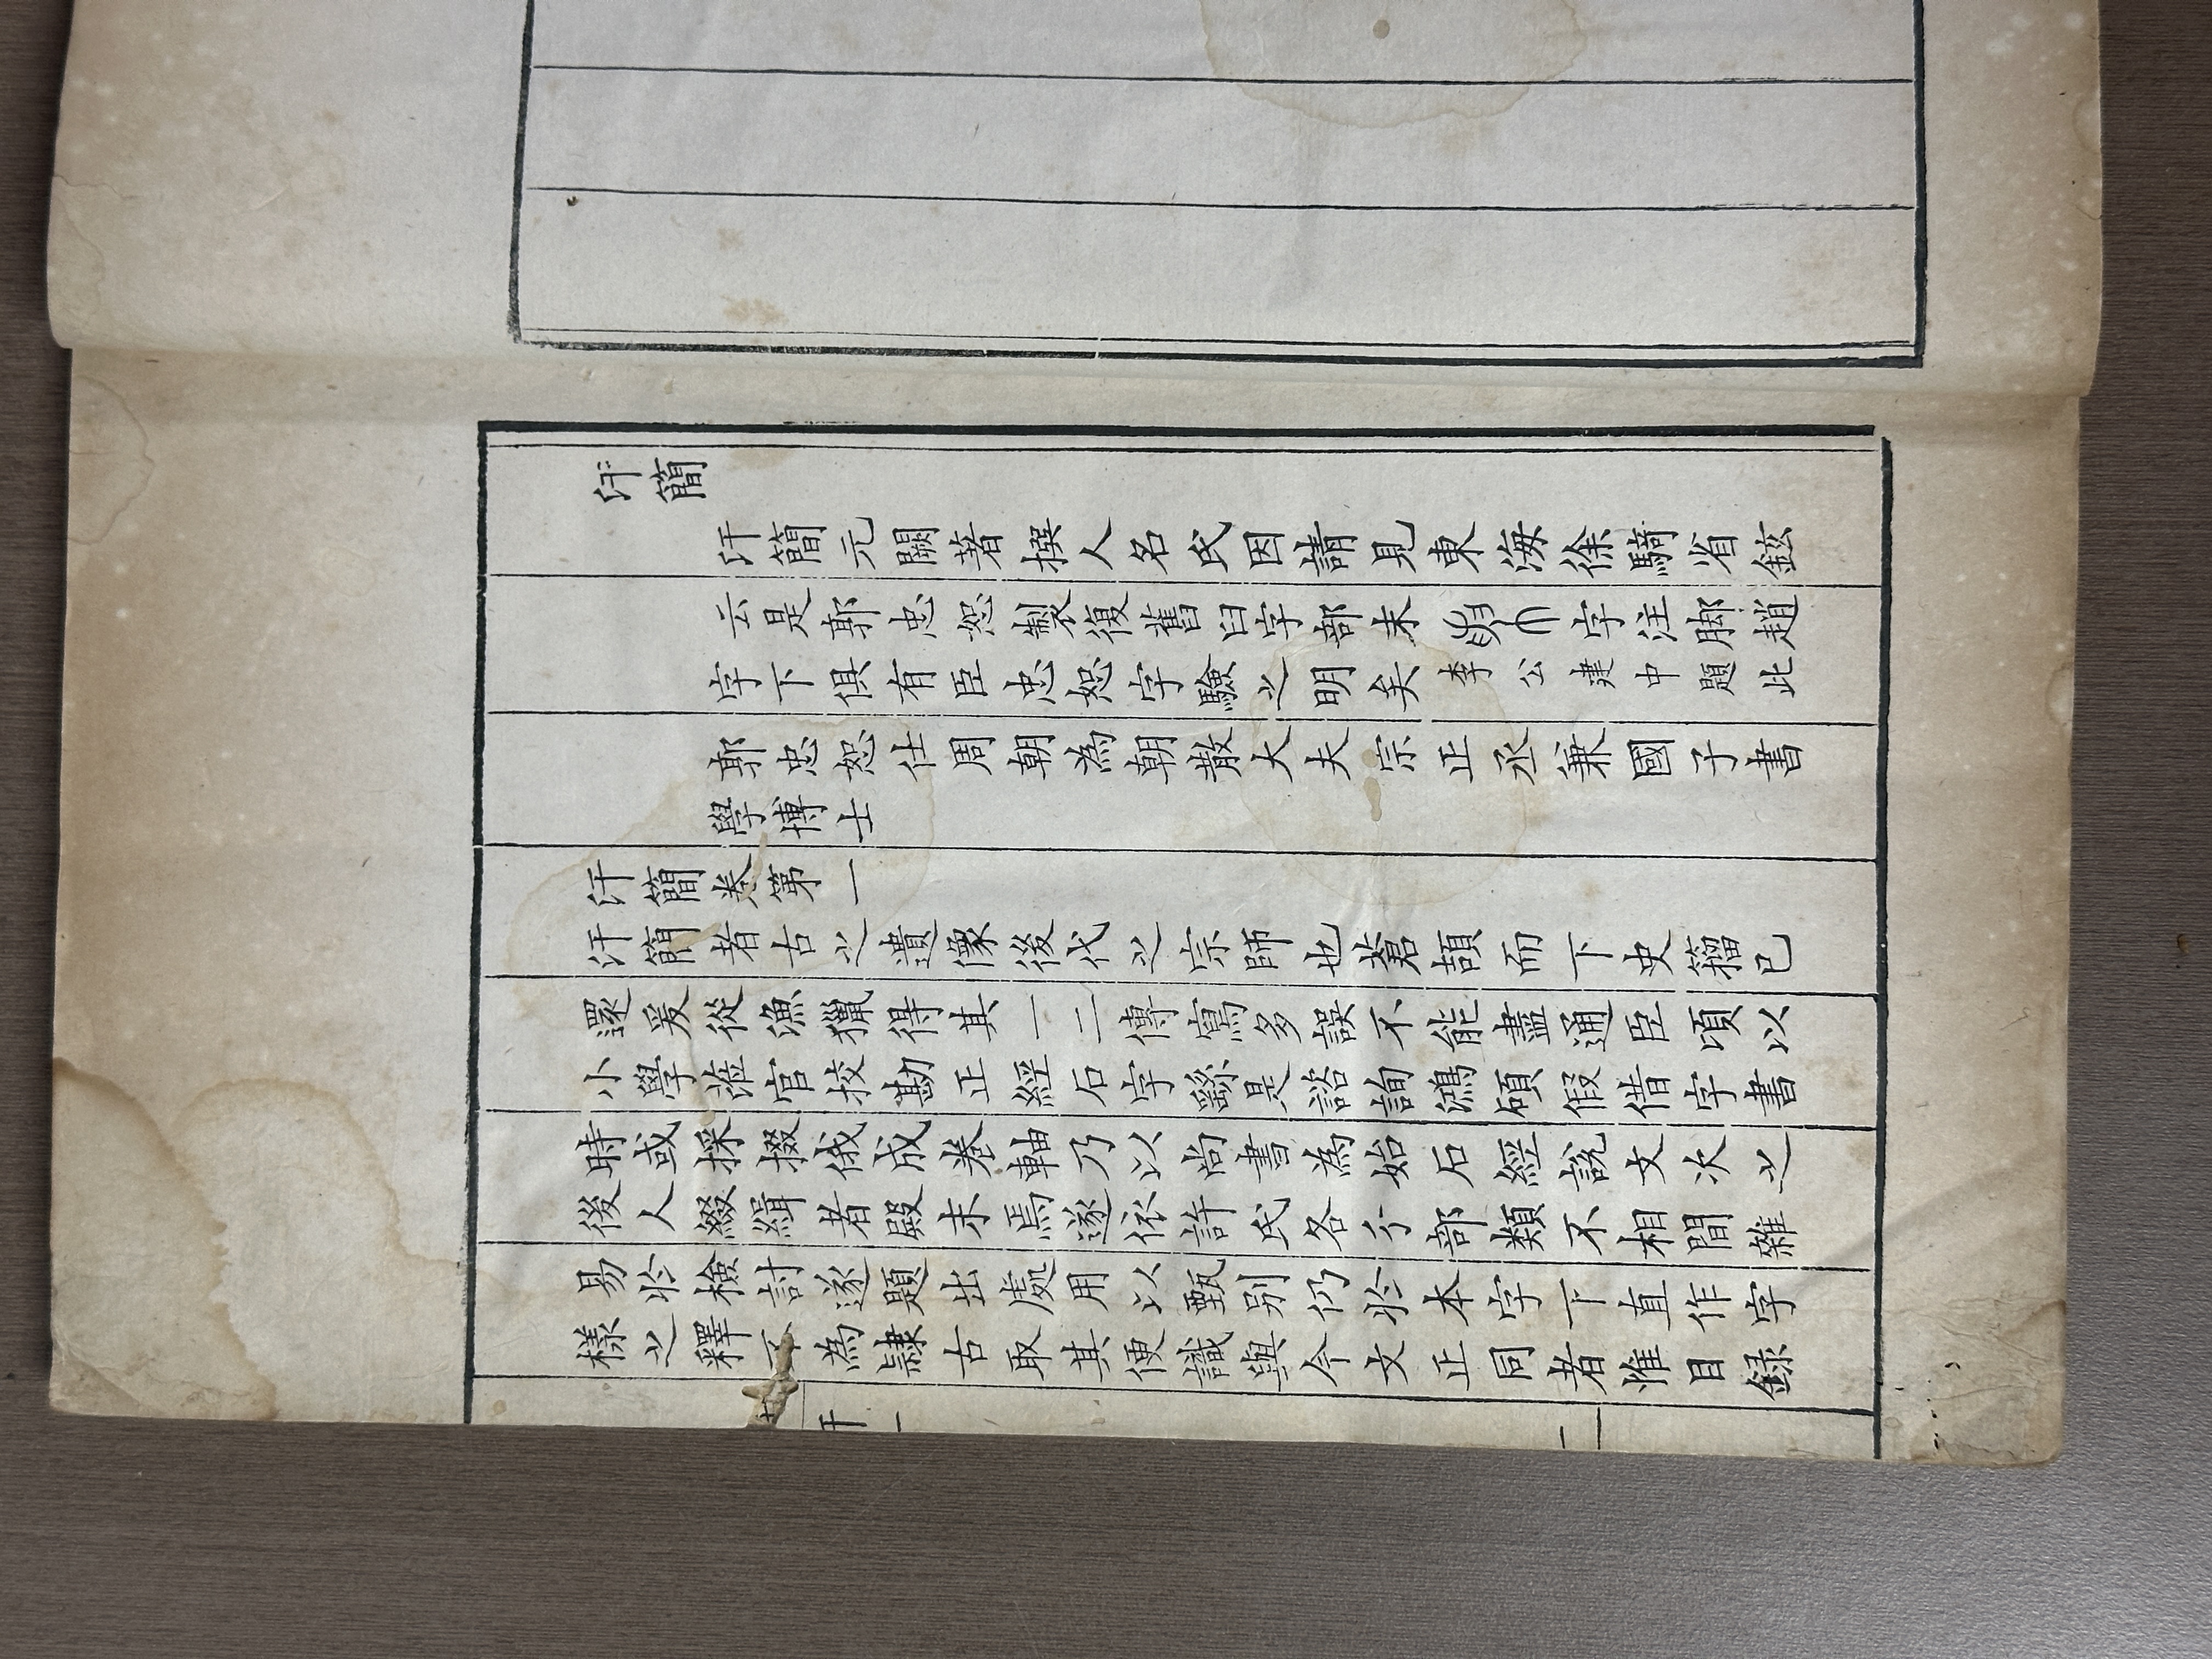 汗簡
汗簡元闕著撰人名氏因請見東海徐騎省鉉
云是郭忠恕製復舊臼字部末字注脚趙
字下俱有臣忠恕字驗之明矣李公建中題此
郭忠恕仕周朝為朝散大夫宗正丞兼國子書
學博士
汗簡卷第一
汗簡者古之遺像後代之宗師也蒼頡而下史籀已
還爰從漁獵得其一二傳寫多誤不能盡通臣頃以
小學蒞官挍勘正經石字繇是諮詢鴻碩假借字書
時或採掇俄成卷軸乃以尚書為始石經說文次之
後人綴緝者殿末焉遂依許氏各分部類不相間雜
易於檢討遂題出處用以甄别仍於本字下直作字
樣之釋不為隸古取其便識與今文正同者惟目録
汗一
二